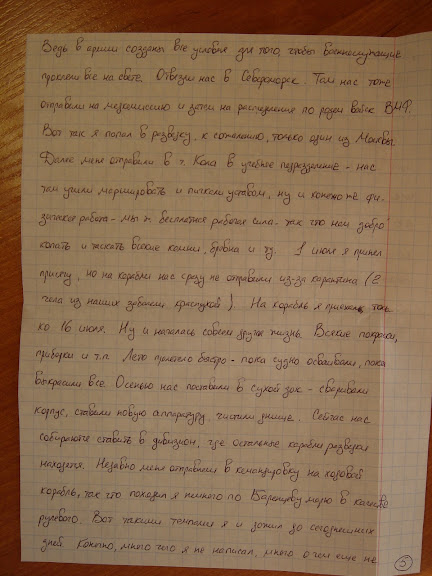 Ведь в армии созданы все условия для того, чтобы военнослужащие
прокляли все на свете. Отвезли нас в Североморск. Там нас тоже
отправили на медкомиссию и затем на распределение по родам войск ВМФ.
Вот так я попал в разведку, к сожалению, только один из Москвы.
Далее меня отправили в г. Кола в учебное подразделение - нас
там учили маршировать и пичкали уставом, ну и конечно же фи-
зическая работа - мы ж бесплатная рабочая сила - так что нам добро
копать и таскать всякие камни, брёвна и тд. 1 июля я принял
присягу, но на корабли нас сразу не отправили из-за карантина (2
чела из наших заболели краснухой). На корабль я приехал толь-
ко 16 июля. Ну и началась совсем другая жизнь. Всякие покраски,
приборки и т.п. Лето пролетело быстро - пока судно осваивали, пока
выкрасили все. Осенью нас поставили в сухой док - сваривали
корпус, ставили новую аппаратуру, чистили днище. Сейчас нас
собираются ставить в дивизион, где остальные корабли разведки
находятся. Недавно меня отправили в командировку на ходовой
корабль, так что походил я немного по Баренцеву морю в качестве
рулевого. Вот такими темпами я и дожил до сегодняшних
дней. Конечно, много чего я не написал, много о чем еще не
5